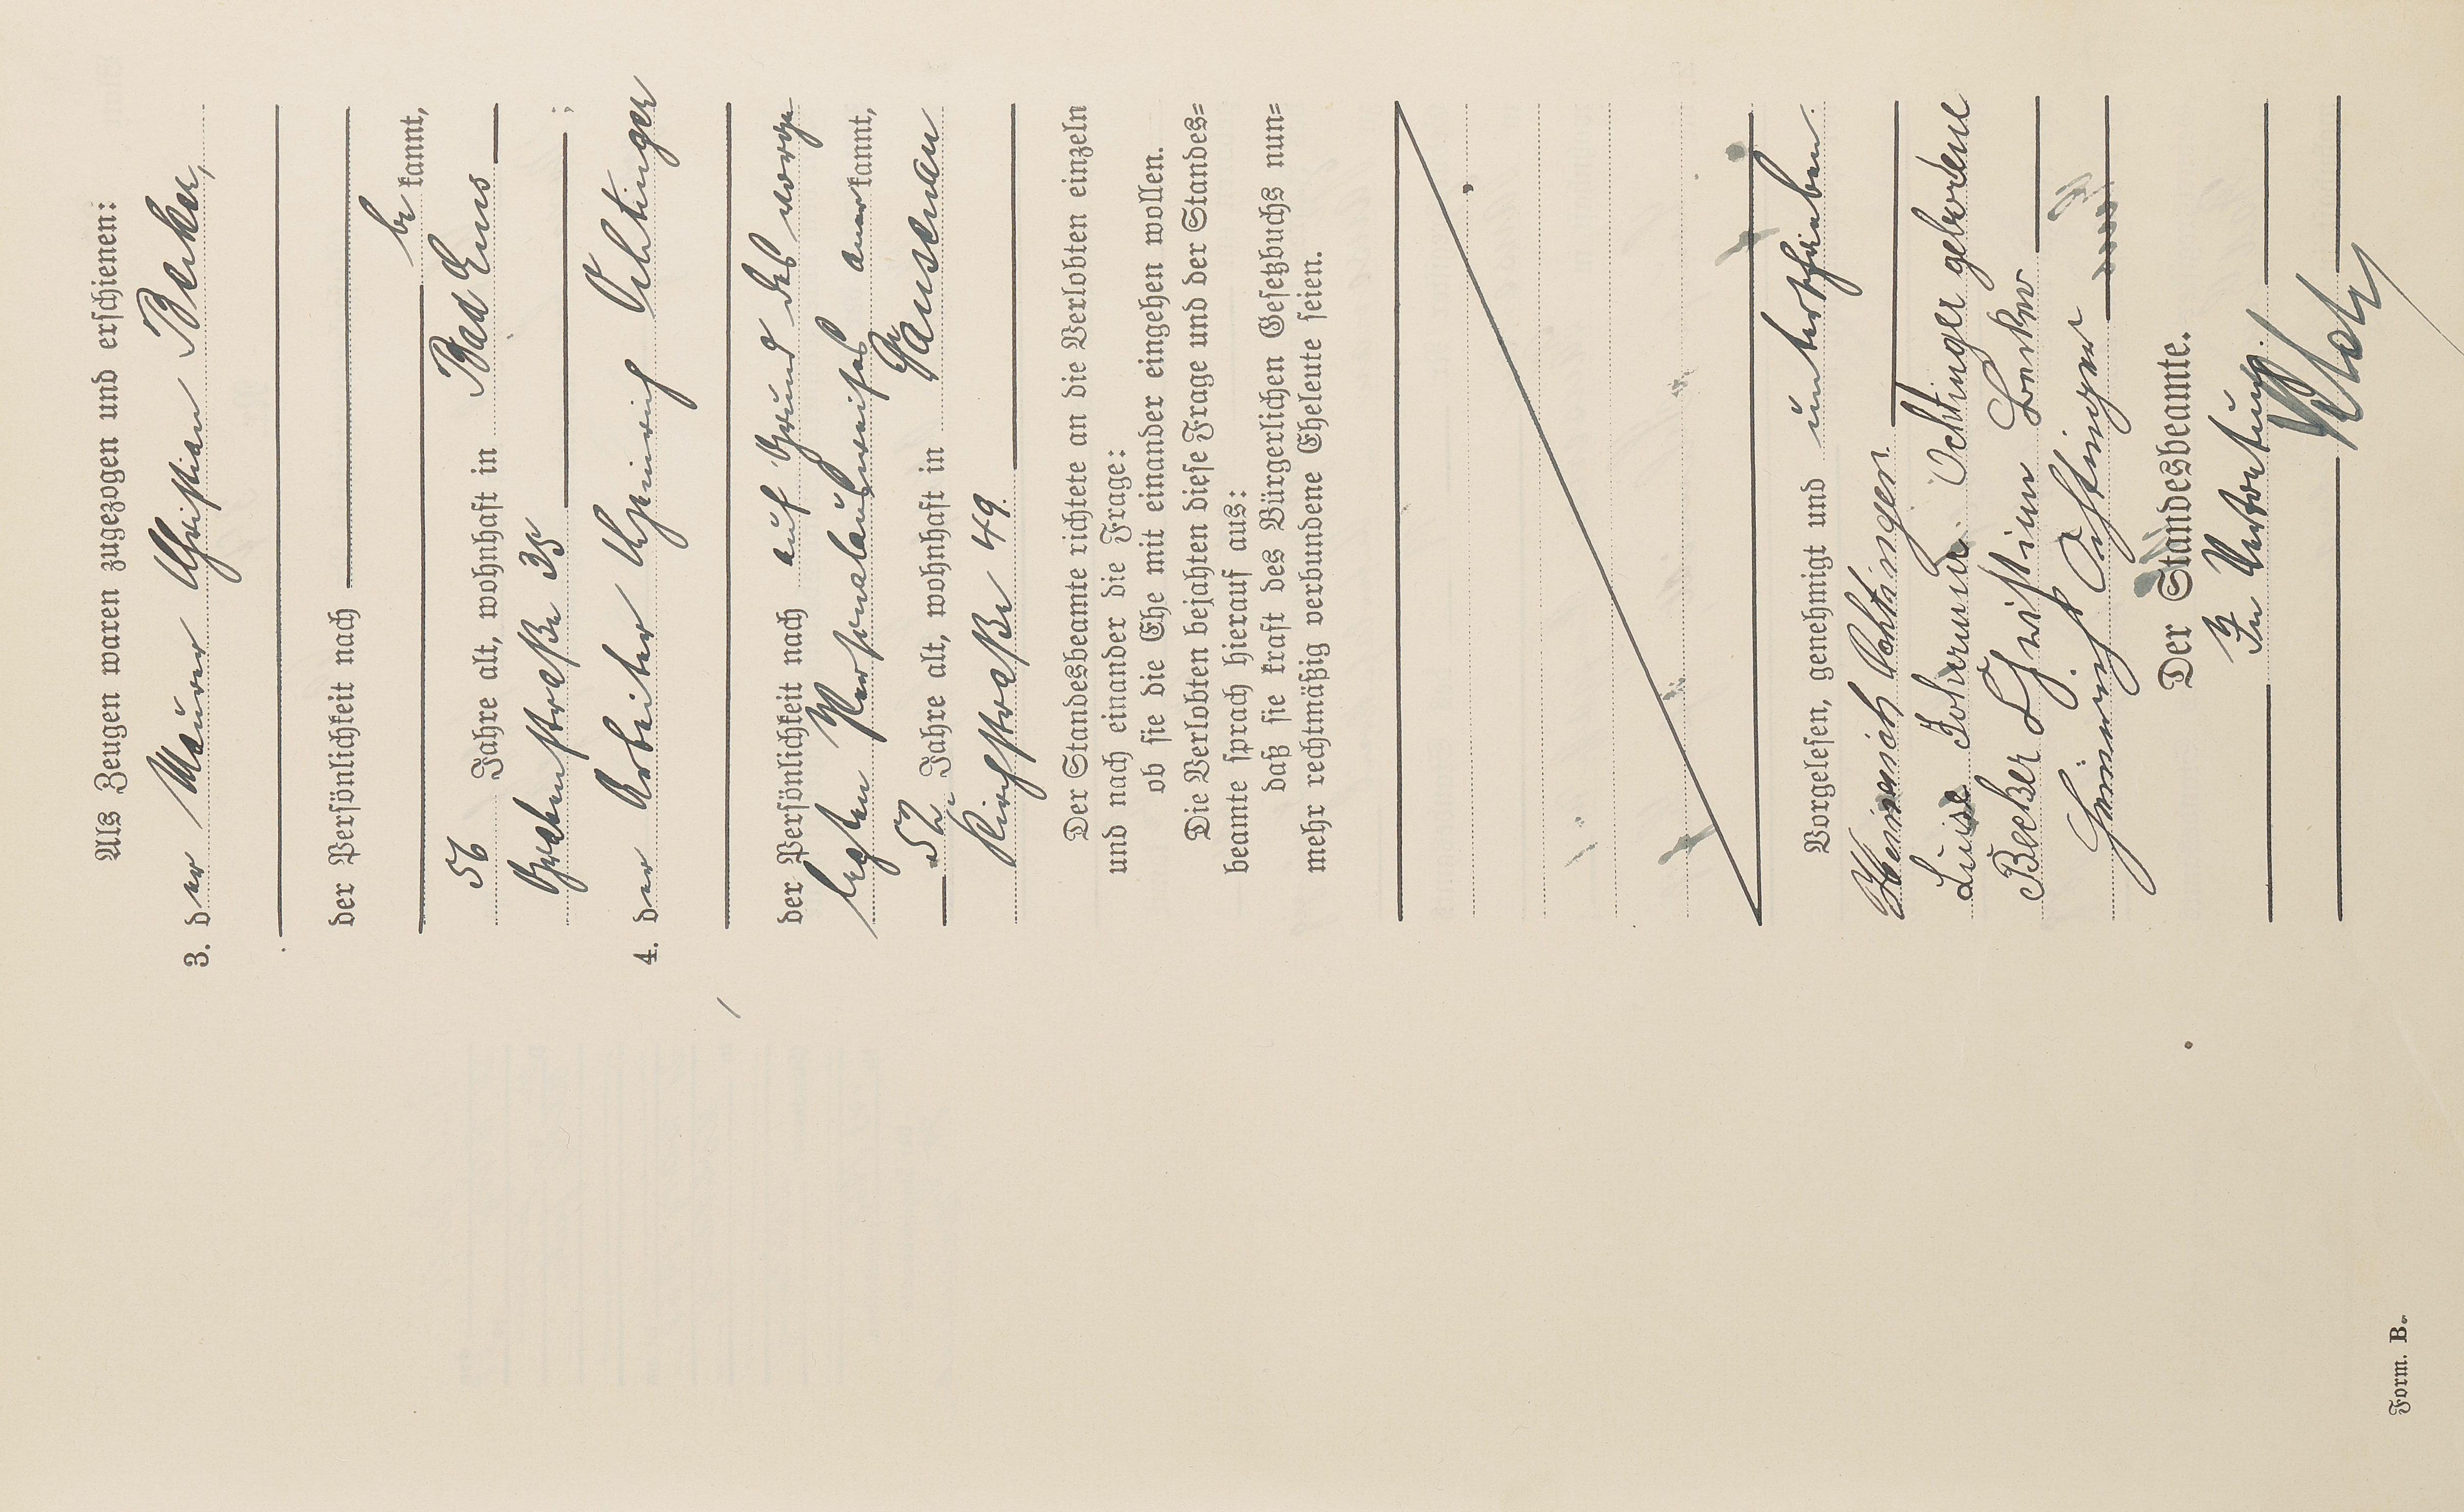 Als Zeugen waren zugezogen und erschienen:
3. der Maurer Christian Becker,
der Persönlichkeit nach
be kannt,
56 Jahre alt, wohnhaft in Bad Ems
Grabenstraße 35 ;
4. der Arbeiter Heinrich Ochtinger
der Persönlichkeit nach auf Grund des vorge
legten Personalausweises aner kannt,
52 Jahre alt, wohnhaft in Hausen
Kirchstraße 49.
Der Standesbeamte richtete an die Verlobten einzeln
und nach einander die Frage:
ob sie die Ehe mit einander eingehen wollen.
Die Verlobten bejahten diese Frage und der Standes=
beamte sprach hierauf aus:
daß sie kraft des Bürgerlichen Gesetzbuchs nun=
mehr rechtmäßig verbundene Eheleute seien.
Vorgelesen, genehmigt und unterschrieben.
Heinrich Ochtinger.
Luise Johanna Ochtinger geborene
Becker Christian Becker
Heinrich Ochtinger
Der Standesbeamte.
In Vertretung.
Form. B.